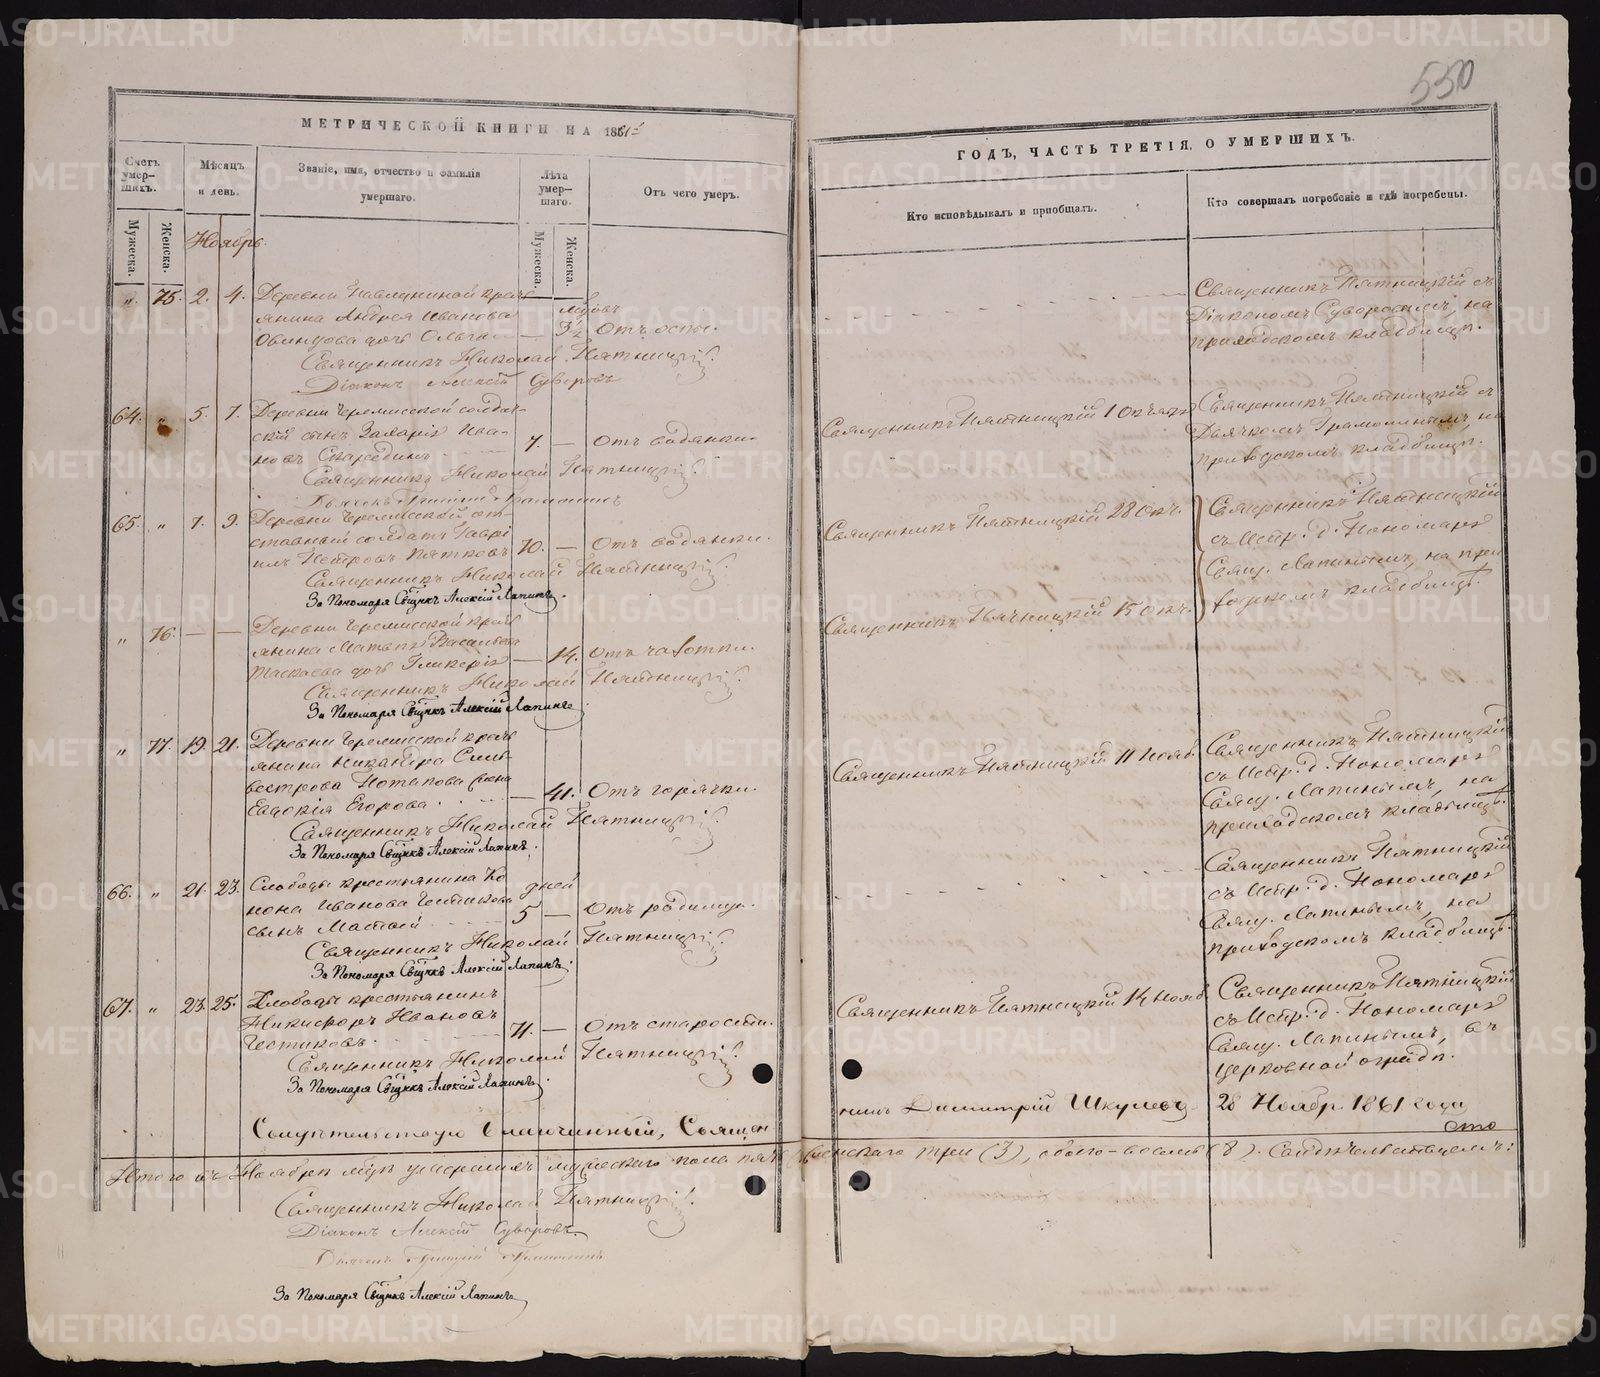 550
МЕТРИЧЕСКОЙ КНИГИ НА 1861й
ГОДЪ, ЧАСТЬ ТРЕТІЯ, О УМЕРШИХЪ.
Счетъ умер-шихъ.
Мѣсяцъ и день.
Званіе, имя, отчество и фамилія умершаго.
Лѣта умер-шаго.
Отъ чего умеръ.
Кто исповѣдывалъ и пріобщалъ.
Кто совершалъ погребеніе и гдѣ погребены.
Мужеска.
Женска.
Мужеска.
Женска.
Ноябрь.
„ 75. 2. 4. Деревни Павлуниной кресть-
янина Андрея Иванова
дочь Ольга — 3½ Отъ оспы.
Священникъ Николай Пятницкій.
Діаконъ Алексій Суворовъ
Священникъ Пятницкій съ
Діакономъ Суворовымъ, на
приходскомъ кладбищѣ.
64. „ 5. 7. Деревни Черемисской солдат-
скій сынъ Захарія Ива-
новъ 7. — Отъ водянки.
Священникъ Николай Пятницкій.
Священникъ Пятницкій 1 Октября
Священникъ Пятницкій съ
Дьячкомъ на
приходскомъ кладбищѣ.
65. „ 7. 9. Деревни Черемисской от-
ставный солдатъ Гаврі-
илъ Петровъ Пятковъ 70. — Отъ водянки.
Священникъ Николай Пятницкій.
За Пономаря Свщнкъ Алексій Лапинъ.
Священникъ Пятницкій 28 Окт.
Священникъ Пятницкій
съ Испр. д. Пономаря
Свящ. Лапинымъ, на при-
ходскомъ кладбищѣ.
„ 76. — — Деревни Черемисской кресть-
янина Матвѣя Васильева
дочь Гликерія — 14. Отъ чахотки.
Священникъ Николай Пятницкій.
За Пономаря Свщнкъ Алексій Лапинъ
Священникъ Пятницкій 15 Окт.
„ 77. 19. 21. Деревни Черемисской кресть-
янина Никандра Силь-
вестрова Потапова жена
Евдокія Егорова. — 41. Отъ горячки.
Священникъ Николай Пятницкій.
За Пономаря Свщнкъ Алексій Лапинъ.
Священникъ Пятницкій 11 Нояб.
Священникъ Пятницкій
съ Испр. д. Пономаря
Свящ. Лапинымъ, на
приходскомъ кладбищѣ.
66. „ 21. 23. Слободы крестьянина Ко-
нона Иванова Честикова дней
сынъ 5 — Отъ родимца.
Священникъ Николай Пятницкій.
За Пономаря Свщнкъ Алексій Лапинъ.
Священникъ Пятницкій
съ Испр. д. Пономаря
Свящ. Лапинымъ, на
приходскомъ кладбищѣ.
67. „ 23. 25. Слободы крестьянинъ
Никифоръ Ивановъ
Честиковъ. 71. — Отъ старости.
Священникъ Николай Пятницкій.
За Пономаря Свщнкъ Алексій Лапинъ.
Священникъ Пятницкій 14 Нояб.
Священникъ Пятницкій
съ Испр. д. Пономаря
Свящ. Лапинымъ, въ
церковной оградѣ.
Свидѣтельствую Благочинный, Священ-
никъ Димитрій Шкулевъ 28 Нояб. 1861 года
Итого въ Ноябрѣ мцѣ умершихъ мужескаго пола женскаго три (3), обоего - восемь (8). Свидѣтельствуемъ:
Священникъ Николай Пятницкій.
Діаконъ Алексій Суворовъ.
За Пономаря Свщнкъ Алексій Лапинъ
METRIKI.GASO-URAL.RU